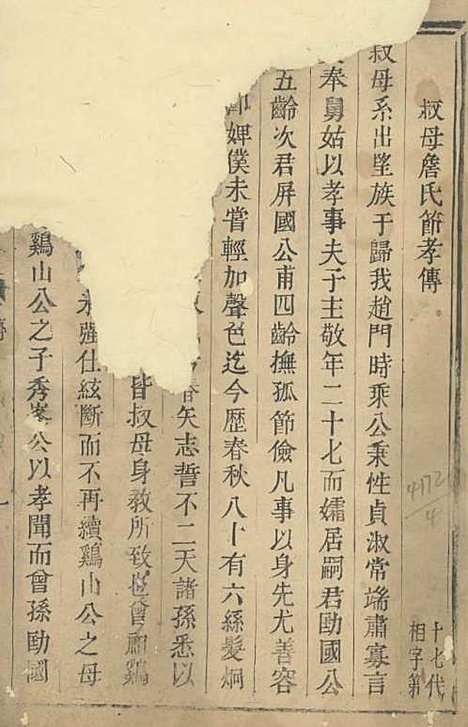 叔母詹氏節孝傳
十七代
相字第
4172/4
叔母系出望族于歸我趙門時乘公秉性貞淑常端肅寡言
奉舅姑以孝事夫子主敬年二十七而孀居嗣君勛國公
五齡次君屏國公甫四齡撫孤節儉凡事以身先尤善容
卹婢僕未嘗輕加聲色迄今歷春秋八十有六絲髮烱
矢志誓不二天諸孫悉以
皆叔母身敎所致從曾
强仕絃斷而不再續鷄山公之母
鷄山公之子秀峯公以孝聞而曾孫勛國